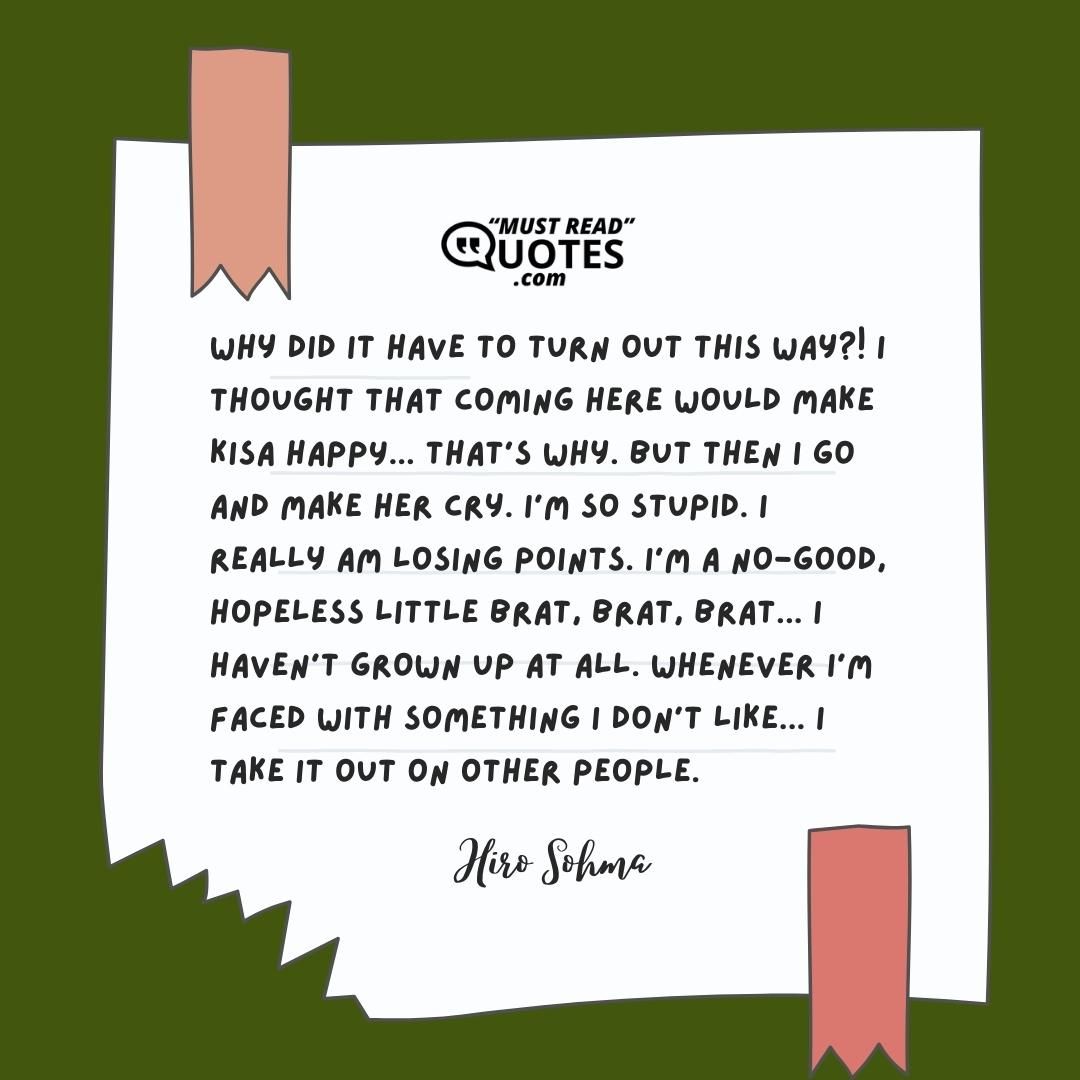 "MUST READ"
QUOTES
.com
WHY DID IT HAVE TO TURN OUT THIS WAY?! I
THOUGHT THAT COMING HERE WOULD MAKE
KISA HAPPY... THAT'S WHY. BUT THEN I GO
AND MAKE HER CRY. I'M SO STUPID. I
REALLY AM LOSING POINTS. I'M A NO-GOOD,
HOPELESS LITTLE BRAT, BRAT, BRAT... I
HAVEN'T GROWN UP AT ALL. WHENEVER I'M
FACED WITH SOMETHING I DON'T LIKE... I
TAKE IT OUT ON OTHER PEOPLE.
Hiro Sohma